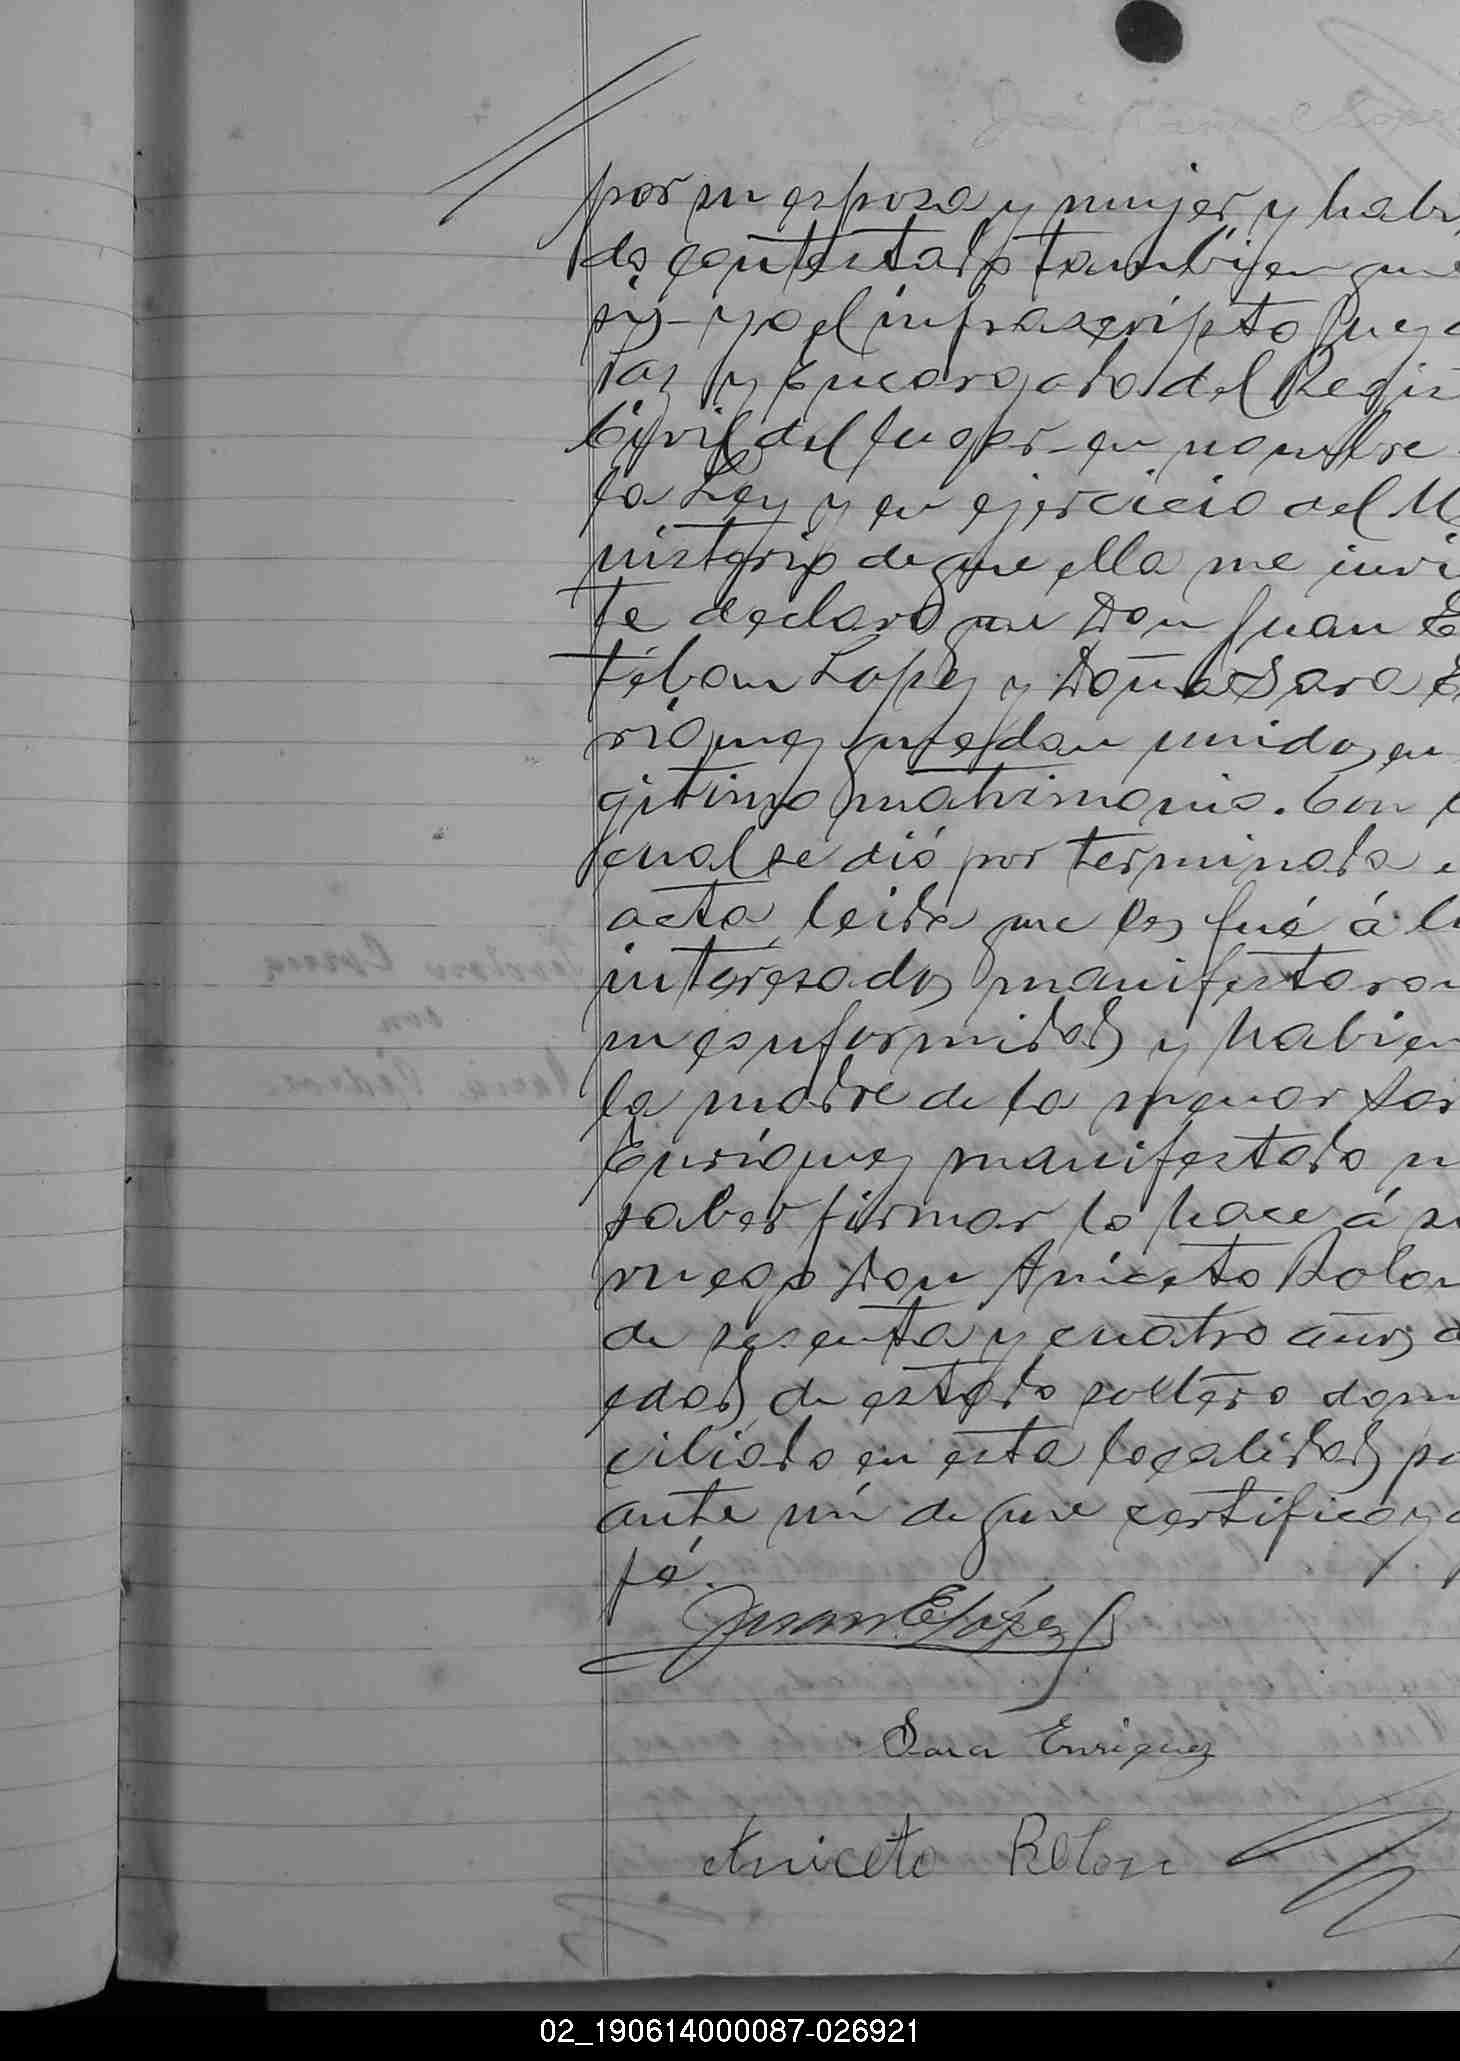 por su esposa y mujer y habi
do contestado tambien que
si yo el infrascripto Juez
Paz y Encargado del Regis
Civil del lugar en nombre
la Ley y en ejercicio del Mi
nisterio de que ella me invis
te declaro que Don Juan E
téban Lopez y Doña Sara E
riquez quedan unidos en
gitimo matrimonio. Con l
cual se dió por terminada e
acta leida que les fué á lo
interesados manifestaron
su conformidad y habien
la madre de la menor Sar
Enríquez manifestado n
saber firmar lo hace á su
ruego Don Aniceto Rolon
de sesenta y cuatro años d
edad de estado soltero domi
ciliado en esta localidad po
ante mí de que certifico y d
fé.
Juan E López
Sara Enriquez
Aniceto Rolon
02_190614000087-026921